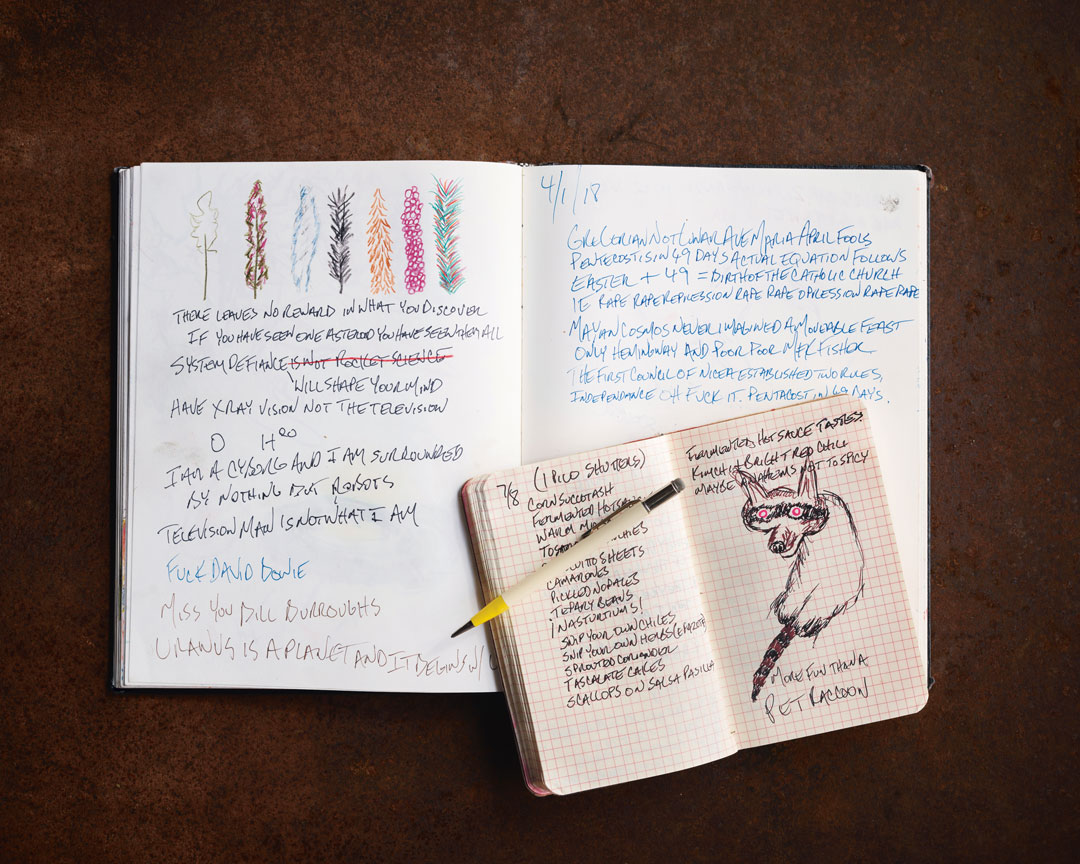 THERE LEAVES NO REWARD IN WHAT YOU DISCOVER
IF YOU HAVE SEEN ONE ASTEROID YOU HAVE SEEN THEM ALL
SYSTEM DEFIANCE IS NOT ROCKET SCIENCE
WILL SHAPE YOUR MIND
HAVE XRAY VISION NOT THE TELEVISION
O H
I AM A CYBORG AND I AM SURROUNDED
BY NOTHING BUT ROBOTS
TELEVISION MAN IS NOT WHAT I AM
FUCK DAVID BOWIE
MISS YOU BILL BURROUGHS
URANUS IS A PLANET AND IT BEGINS W/
4/1/18
GREGORIAN NOT LUNAR AVE MARIA APRIL FOOLS
PENTECOST IS IN 49 DAYS ACTUAL EQUATION FOLLOWS
EASTER + 49 = BIRTH OF THE CATHOLIC CHURCH
IE RAPE RAPE REPRESSION RAPE RAPE OPRESSION RAPE RAPE
MAYAN COSMOS NEVER IMAGINED A MOVEABLE FEAST
ONLY HEMINGWAY AND POOR POOR MFK FISHER
THE FIRST COUNCIL OF NICEA ESTABLISHED TWO RULES,
INDEPENDANCE OH FUCK IT. PENTACOST IN 49 DAYS.
7/8 (1 PICO SHUTTERS)
CORN SUCCOTASH
FERMENTED HOT
WARM
SHEETS
CAMARONES
PICKLED NOPALES
TEPARY BEANS
¡NASTURTIUMS!
SNIP YOUR OWN CHILES
SNIP YOUR OWN HERBS (EPAZOTE)
SPROUTED CORIANDER
TASCALATE CAKES
SCALLOPS ON SALSA PASILLA
FERMENTED HOT SAUCE TASTES
KIMCHI & BRIGHT RED CHILE
MAYBE ANAHEIMS NOT TO SPICY
MORE FUN THAN A
PET RACCOON